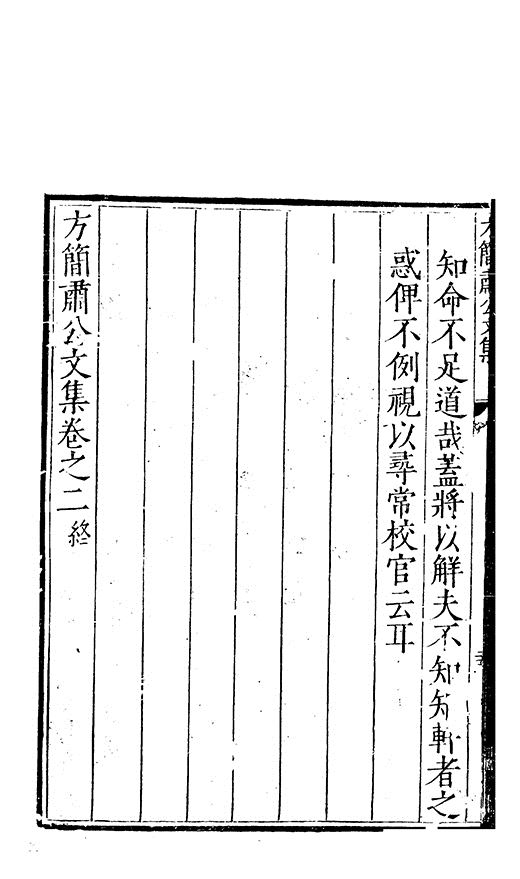 方簡肅公文集
知命不足道哉蓋將以觧夫不知知軒者之
惑俾不例視以尋常校官云耳
方簡肅公文集卷之二終